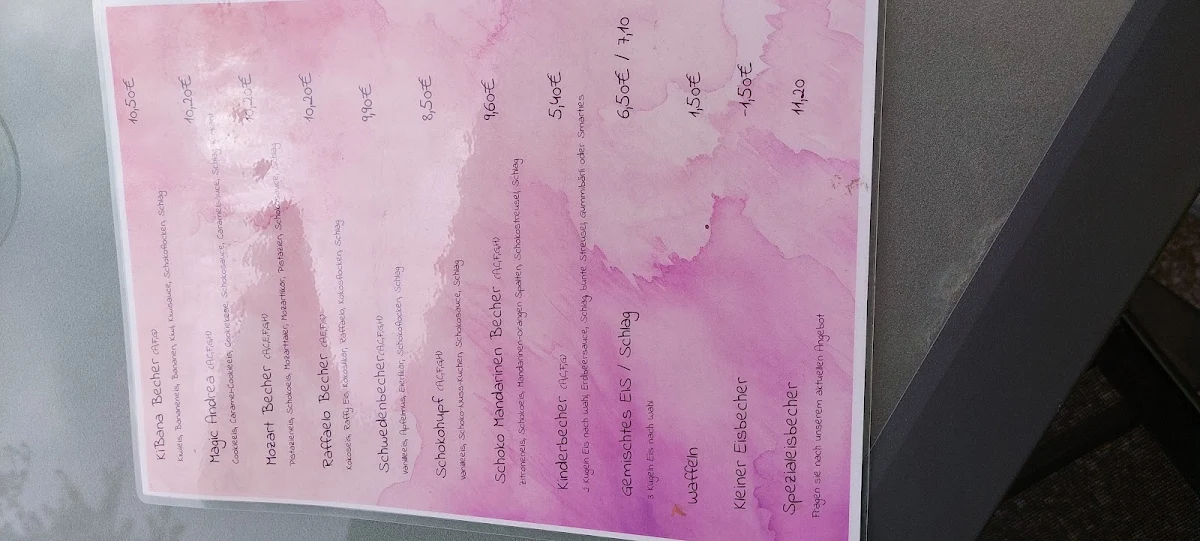 KiBana Becher (A,F,G) 10,50€
Kiwieis, Bananeneis, Bananen, Kiwi, Kiwisauce, Schokoflocken, Schlag
Magic Andrea (A,C,F,G,H) 10,20€
Cookieeis, Caramel-Cookieeis, Cookiekekse, Schokosauce, Caramelsauce, Schlag
Mozart Becher (A,C,E,F,G,H) 10,20€
Pistazieneis, Schokoeis, Mozarttaler, Mozartlikör, Pistazien, Schokosauce, Schlag
Raffaelo Becher (A,E,F,G) 10,20€
Kokoseis, Raffy Eis, Kokoslikör, Raffaelo, Kokosflocken, Schlag
Schwedenbecher (A,C,F,G,H) 9,90€
Vanilleeis, Apfelmus, Eierlikör, Schokoflocken, Schlag
Schokohupf (A,C,F,G,H) 8,50€
Vanilleeis, Schoko-Nuss-Kuchen, Schokosauce, Schlag
Schoko Mandarinen Becher (A,C,F,G,H) 9,60€
Zitroneneis, Schokoeis, Mandarinen-Orangen Spalten, Schokostreusel, Schlag
Kinderbecher (A,C,F,G) 5,40€
2 Kugeln Eis nach Wahl, Erdbeersauce, Schlag, bunte Streusel, Gummibärli oder Smarties
Gemischtes Eis / Schlag 6,50€ / 7,10
3 Kugeln Eis nach Wahl
Waffeln 1,50€
Kleiner Eisbecher -1,50€
Spezialeisbecher 11,20
Fragen sie nach unserem aktuellen Angebot